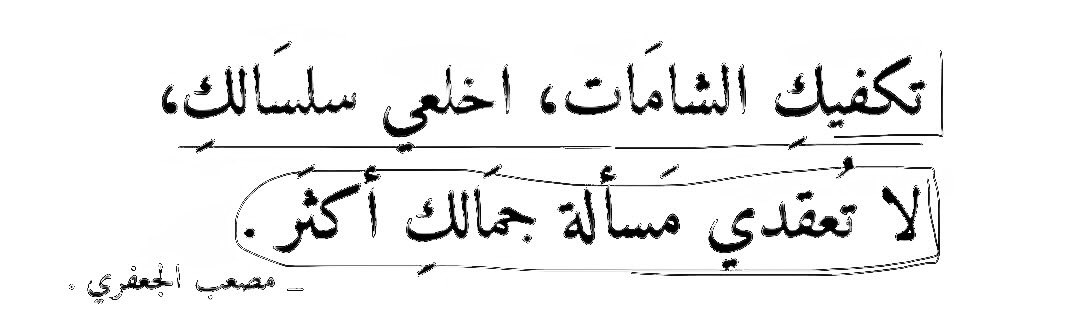 تكفيكِ الشامَات، اخلعي سلسَالكِ،
لا تُعقدي مَسألة جمَالكِ أكثَر .
_ مصعب الجعفري .